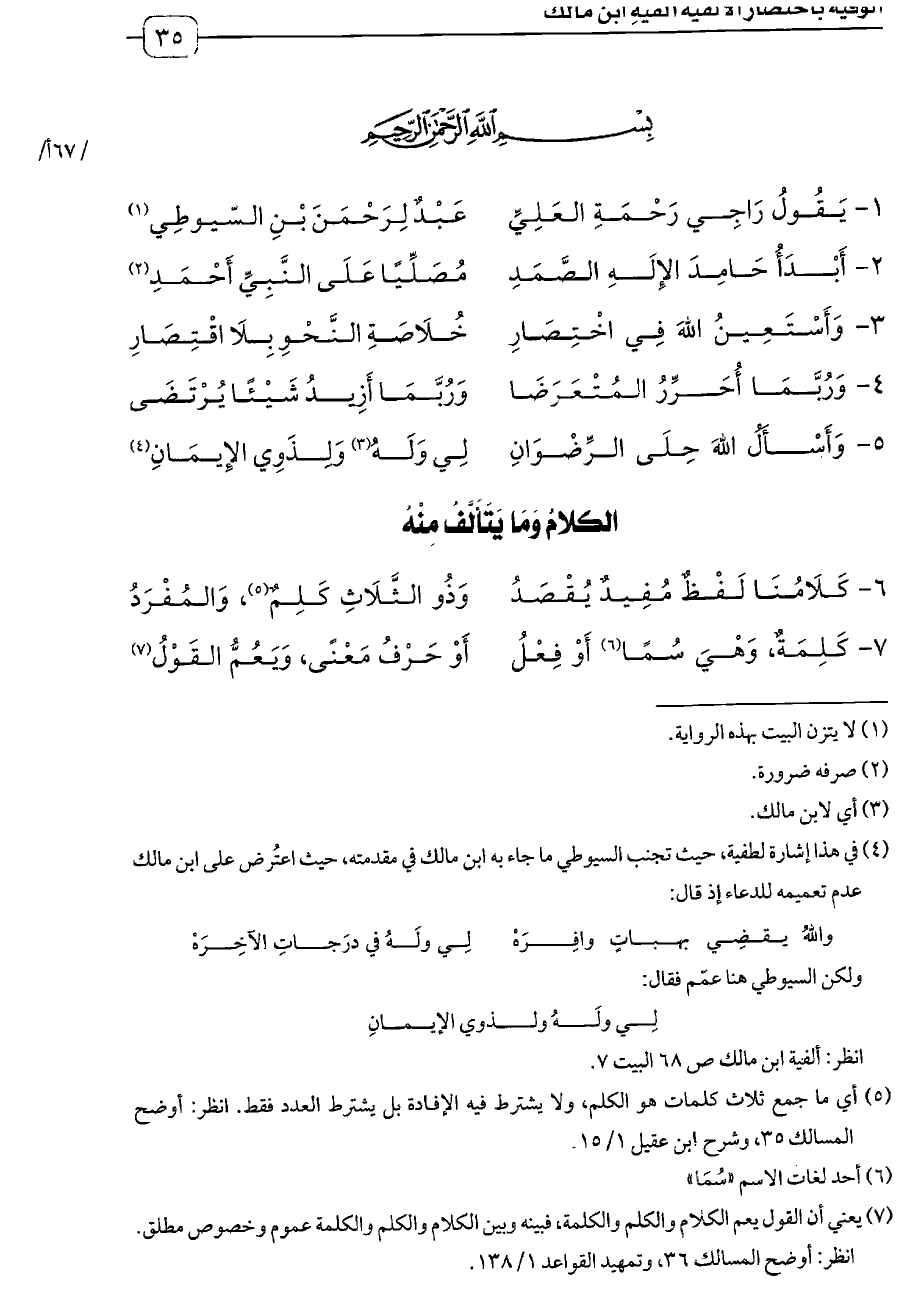 الوفية باختصار الألفية ألفية ابن مالك
٣٥
بسم الله الرحمن الرحيم
/٦٧أ/
١- يَـقُـولُ رَاجِـي رَحْـمَـةِ العَـلِيِّ عَبْـدٌ لِـرَحْـمَـنَ بْـنِ السّـيـوطِـي(١)
٢- أَبْـــدَأُ حَـامِـدَ الإِلَـهِ الصَّـمَـدِ مُـصَـلِّيًا عَـلَى الـنَّـبِـيِّ أَحْـمَـدِ(٢)
٣- وَأَسْـتَـعِـيـنُ اللهَ فِـي اخْـتِـصَـارِ خُـلَاصَـةِ الـنَّـحْـوِ بِـلَا اقْـتِـصَـارِ
٤- وَرُبَّـمَـا أُحَــرِّرُ الـمُـتْـعَـرَضَـا وَرُبَّـمَـا أَزِيـدُ شَـيْـئًـا يُـرْتَـضَـى
٥- وَأَسْــأَلُ اللهَ حِـلَـى الـرِّضْـوَانِ لِـي وَلَـهُ(٣) وَلِـذَوِي الإِيـمَـانِ(٤)
الكلامُ وَمَا يَتَأَلَّفُ مِنْهُ
٦- كَـلَامُـنَـا لَـفْـظٌ مُـفِـيـدٌ يُـقْـصَـدُ وَذُو الـثَّـلَاثِ كَـلِـمٌ(٥)، وَالـمُـفْـرَدُ
٧- كَـلِـمَـةٌ، وَهْـيَ سُـمًـا(٦) أَوْ فِـعْـلُ أَوْ حَـرْفُ مَـعْـنًى، وَيَـعُـمُّ الـقَـوْلُ(٧)
(١) لا يتزن البيت بهذه الرواية.
(٢) صرفه ضرورة.
(٣) أي لابن مالك.
(٤) في هذا إشارة لطفية، حيث تجنب السيوطي ما جاء به ابن مالك في مقدمته، حيث اعتُرض على ابن مالك
عدم تعميمه للدعاء إذ قال:
واللهُ يـقـضِـي بـهـبـاتٍ وافِــرَهْ لِـي ولَـهُ في درَجــاتِ الآخِـرَهْ
ولكن السيوطي هنا عمّم فقال:
لِــي ولَــهُ ولــذوي الإيــمــانِ
انظر: ألفية ابن مالك ص ٦٨ البيت ٧.
(٥) أي ما جمع ثلاث كلمات هو الكلم، ولا يشترط فيه الإفادة بل يشترط العدد فقط. انظر: أوضح
المسالك ٣٥، وشرح ابن عقيل ١/ ١٥.
(٦) أحد لغات الاسم «سُمَا»
(٧) يعني أن القول يعم الكلام والكلم والكلمة، فبينه وبين الكلام والكلم والكلمة عموم وخصوص مطلق.
انظر: أوضح المسالك ٣٦، وتمهيد القواعد ١/ ١٣٨.